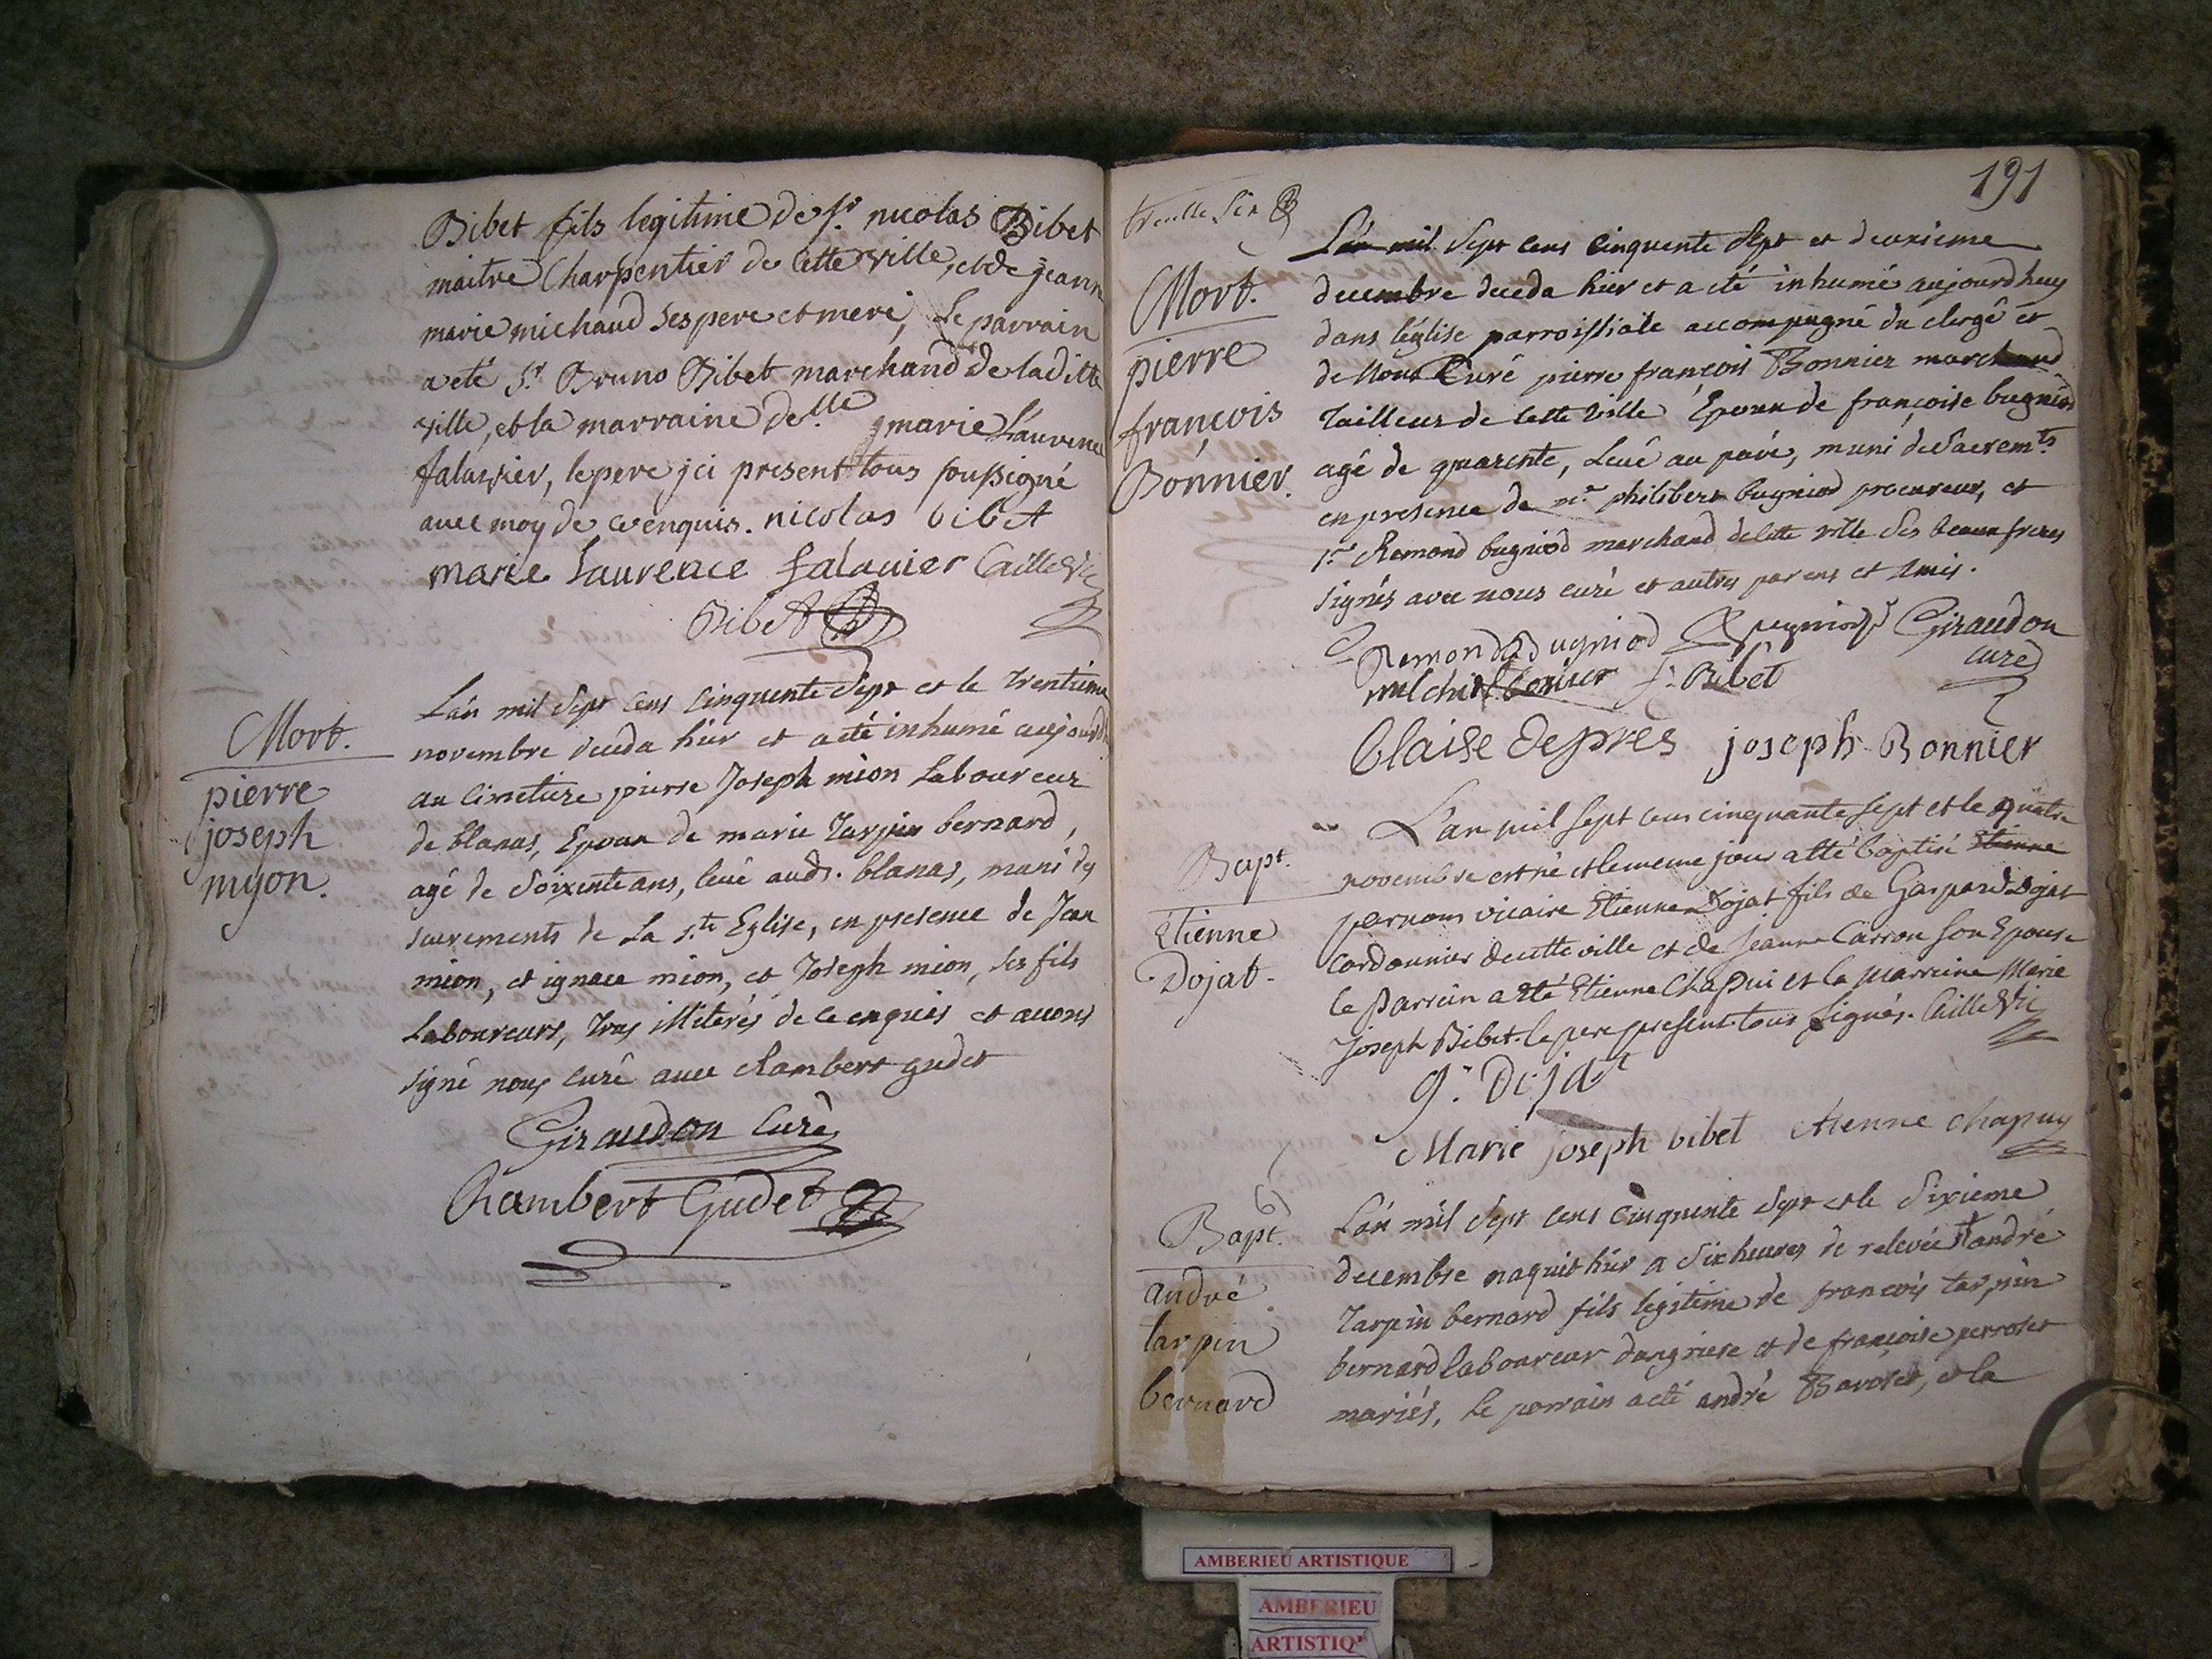 Bibet fils legitime de sr. nicolas Bibet
maitre Charpentier de cette ville, et de jeanne
marie michaud ses pere et mere, Le parrain
a eté Sr. Bruno Bibet marchand de laditte
ville, et la marraine delle. marie Laurence
falavier, le pere jci present tous soussigné
avec moy de ce enquis. nicolas bibet
marie Laurence falavier Caille vic
Bibet
Mort.
pierre
joseph
myon.
L'an mil sept cens cinquente sept et le trentieme
novembre deceda hier et a eté inhumé aujourd
au cimetiere pierre Joseph mion Laboureur
de blanas, Epoux de marie Tarpin bernard,
agé de soixente ans, levé audt. blanas, muni des
sacrements de La ste. Eglise, en presence de Jean
mion, et ignace mion, et Joseph mion, ses fils
Laboureurs, tous illiterés de ce enquis et avons
signé nous curé avec Rambert gudet
Giraudon Curé
Rambert Gudet
191
Mort.
pierre
francois
Bonnier.
L'an mil sept cens cinquente sept et deuxieme
decembre deceda hier et a eté inhumé aujourdhuy
dans léglise parroissiale accompagné du clergé et
de Nous Curé pierre françois Bonnier marchand
Tailleur de cette ville Epoux de françoise bugniod
agé de quarente, Levé au pavé, muni de Sacremts
en presence de me philibert bugniod procureur, et
sr. Remond bugniod marchand de cette ville ses beaux freres
signés avec nous curé et autres parens et amis.
Remond Bugniod Bugniod Giraudon
curé
melchior bonier f. Bibet
blaise depres joseph Bonnier
Bapt.
Etienne
Dojat.
L'an mil sept cens cinquante sept et le quatre
novembre est né et le meme jour a eté baptisé Etienne
par nous vicaire Etienne Dojat fils de Gaspard Dojat
cordonnier de cette ville et de Jeanne Carron son Epouse
le Parrain a eté Etienne Chapui et la marreine Marie
Joseph Bibet le pere present tous signés. Caille vic
g. Dojat
Marie joseph bibet etienne chapuy
Bapt.
andré
tarpin
bernard
L'an mil sept cens cinquente sept et le Sixieme
decembre naquit hier a six heures de relevée andré
Tarpin bernard fils legitime de francois tarpin
bernard laboureur dangriere et de françoise perroset
mariés, Le parrain a eté andré Bavoset, et la
AMBERIEU ARTISTIQUE
AMBERIEU
ARTISTIQ